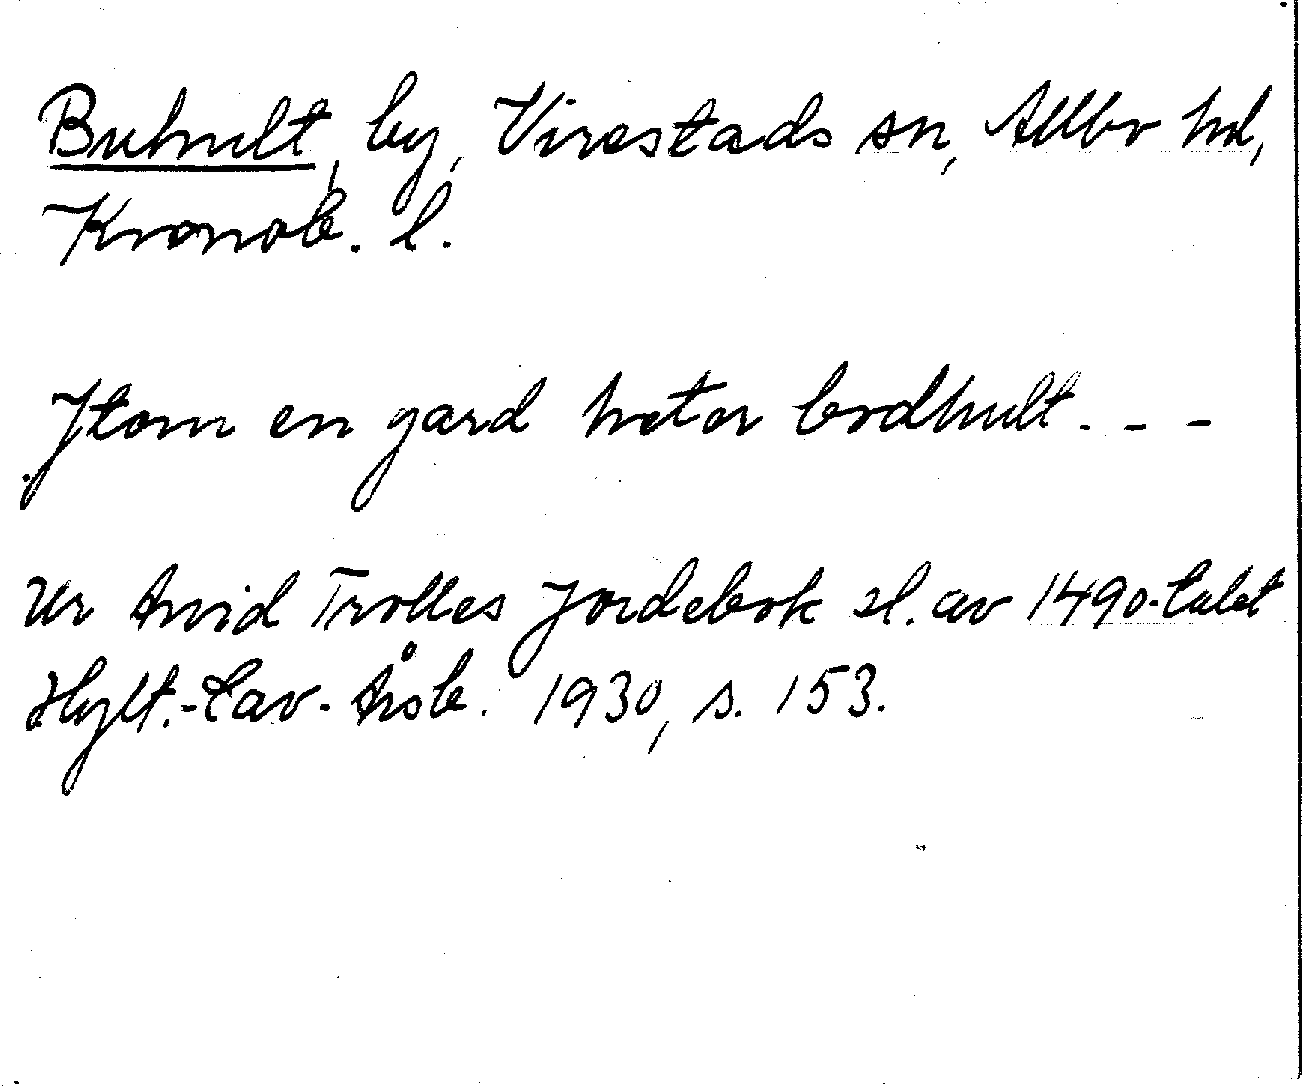 Buhult, by, Virestads sn, Allbo hd,
Kronob. l.
Jtem en gard heter bodhult - - -
Ur Arvid Trolles Jordebok sl. av 1490-talet
Hylt.-Cav.-Årsb. 1930, s. 153.